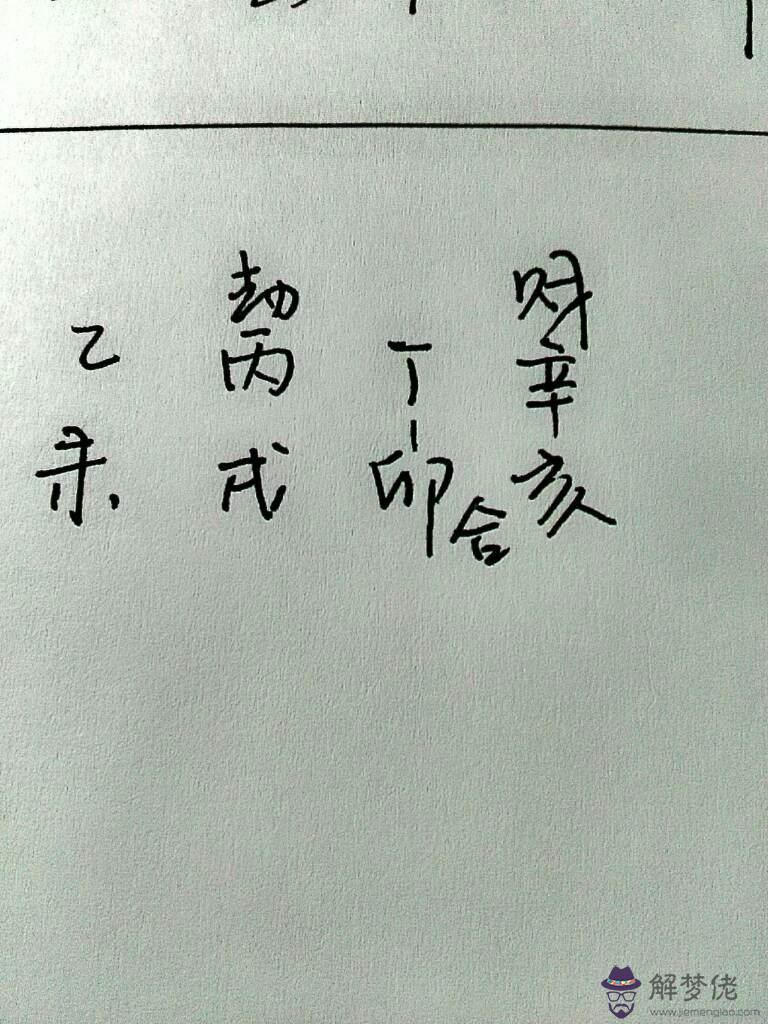 劫 财
乙 丙 丁 辛
未 戌 卯 合 亥
解梦佬
www.jiemenglao.com